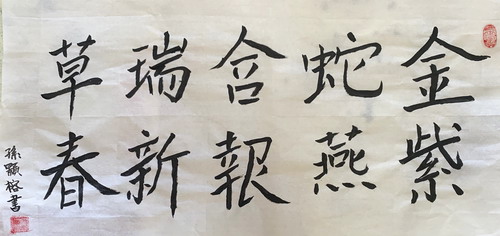 金蛇含瑞草
紫燕報新春
孫榕書